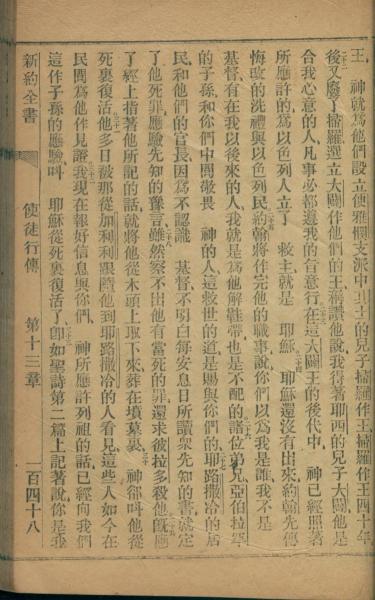 王、 神就爲他們設立便雅憫支派中其士的兒子掃羅作王四十年
二十二後又廢了掃羅選立大闢作他們的王稱讚他說我得著耶西的兒子大闢他是
合我心意的人凡事必都遵我的旨意行二十三在這大闢王的後代中、 神已經照著
所應許的爲以色列人立了 救主就是 耶穌二十四 耶穌還沒有出來約翰先傳
悔改的洗禮與以色列民二十五約翰將作完他的職事說你們以爲我是誰我不是
基督有在我以後來的人我就是爲他解鞋帶也是不配的二十六諸位弟兄亞伯拉罕
的子孫和你們中間敬畏 神的人這救世的道是賜與你們的二十七耶路撒冷的居
民和他們的官長因爲不認識 基督不明白每安息日所讀衆先知的書就定
了他死罪應驗先知的豫言二十八雖然察不出他有當死的罪還求彼拉多殺他二十九旣應
了經上指著他所記的話就將他從木頭上取下來葬在墳墓裏三十 神卻叫他從
死裏復活三十一他多日被那從加利利跟隨他到耶路撒冷的人看見這些人如今在
民間爲他作見證三十二我現在報好信息與你們、 神所應許列祖的話三十三已經向我們
這作子孫的應驗叫 耶穌從死裏復活了卽如聖詩第二篇上記著說你是我
新約全書 使徒行傳 第十三章 一百四十八